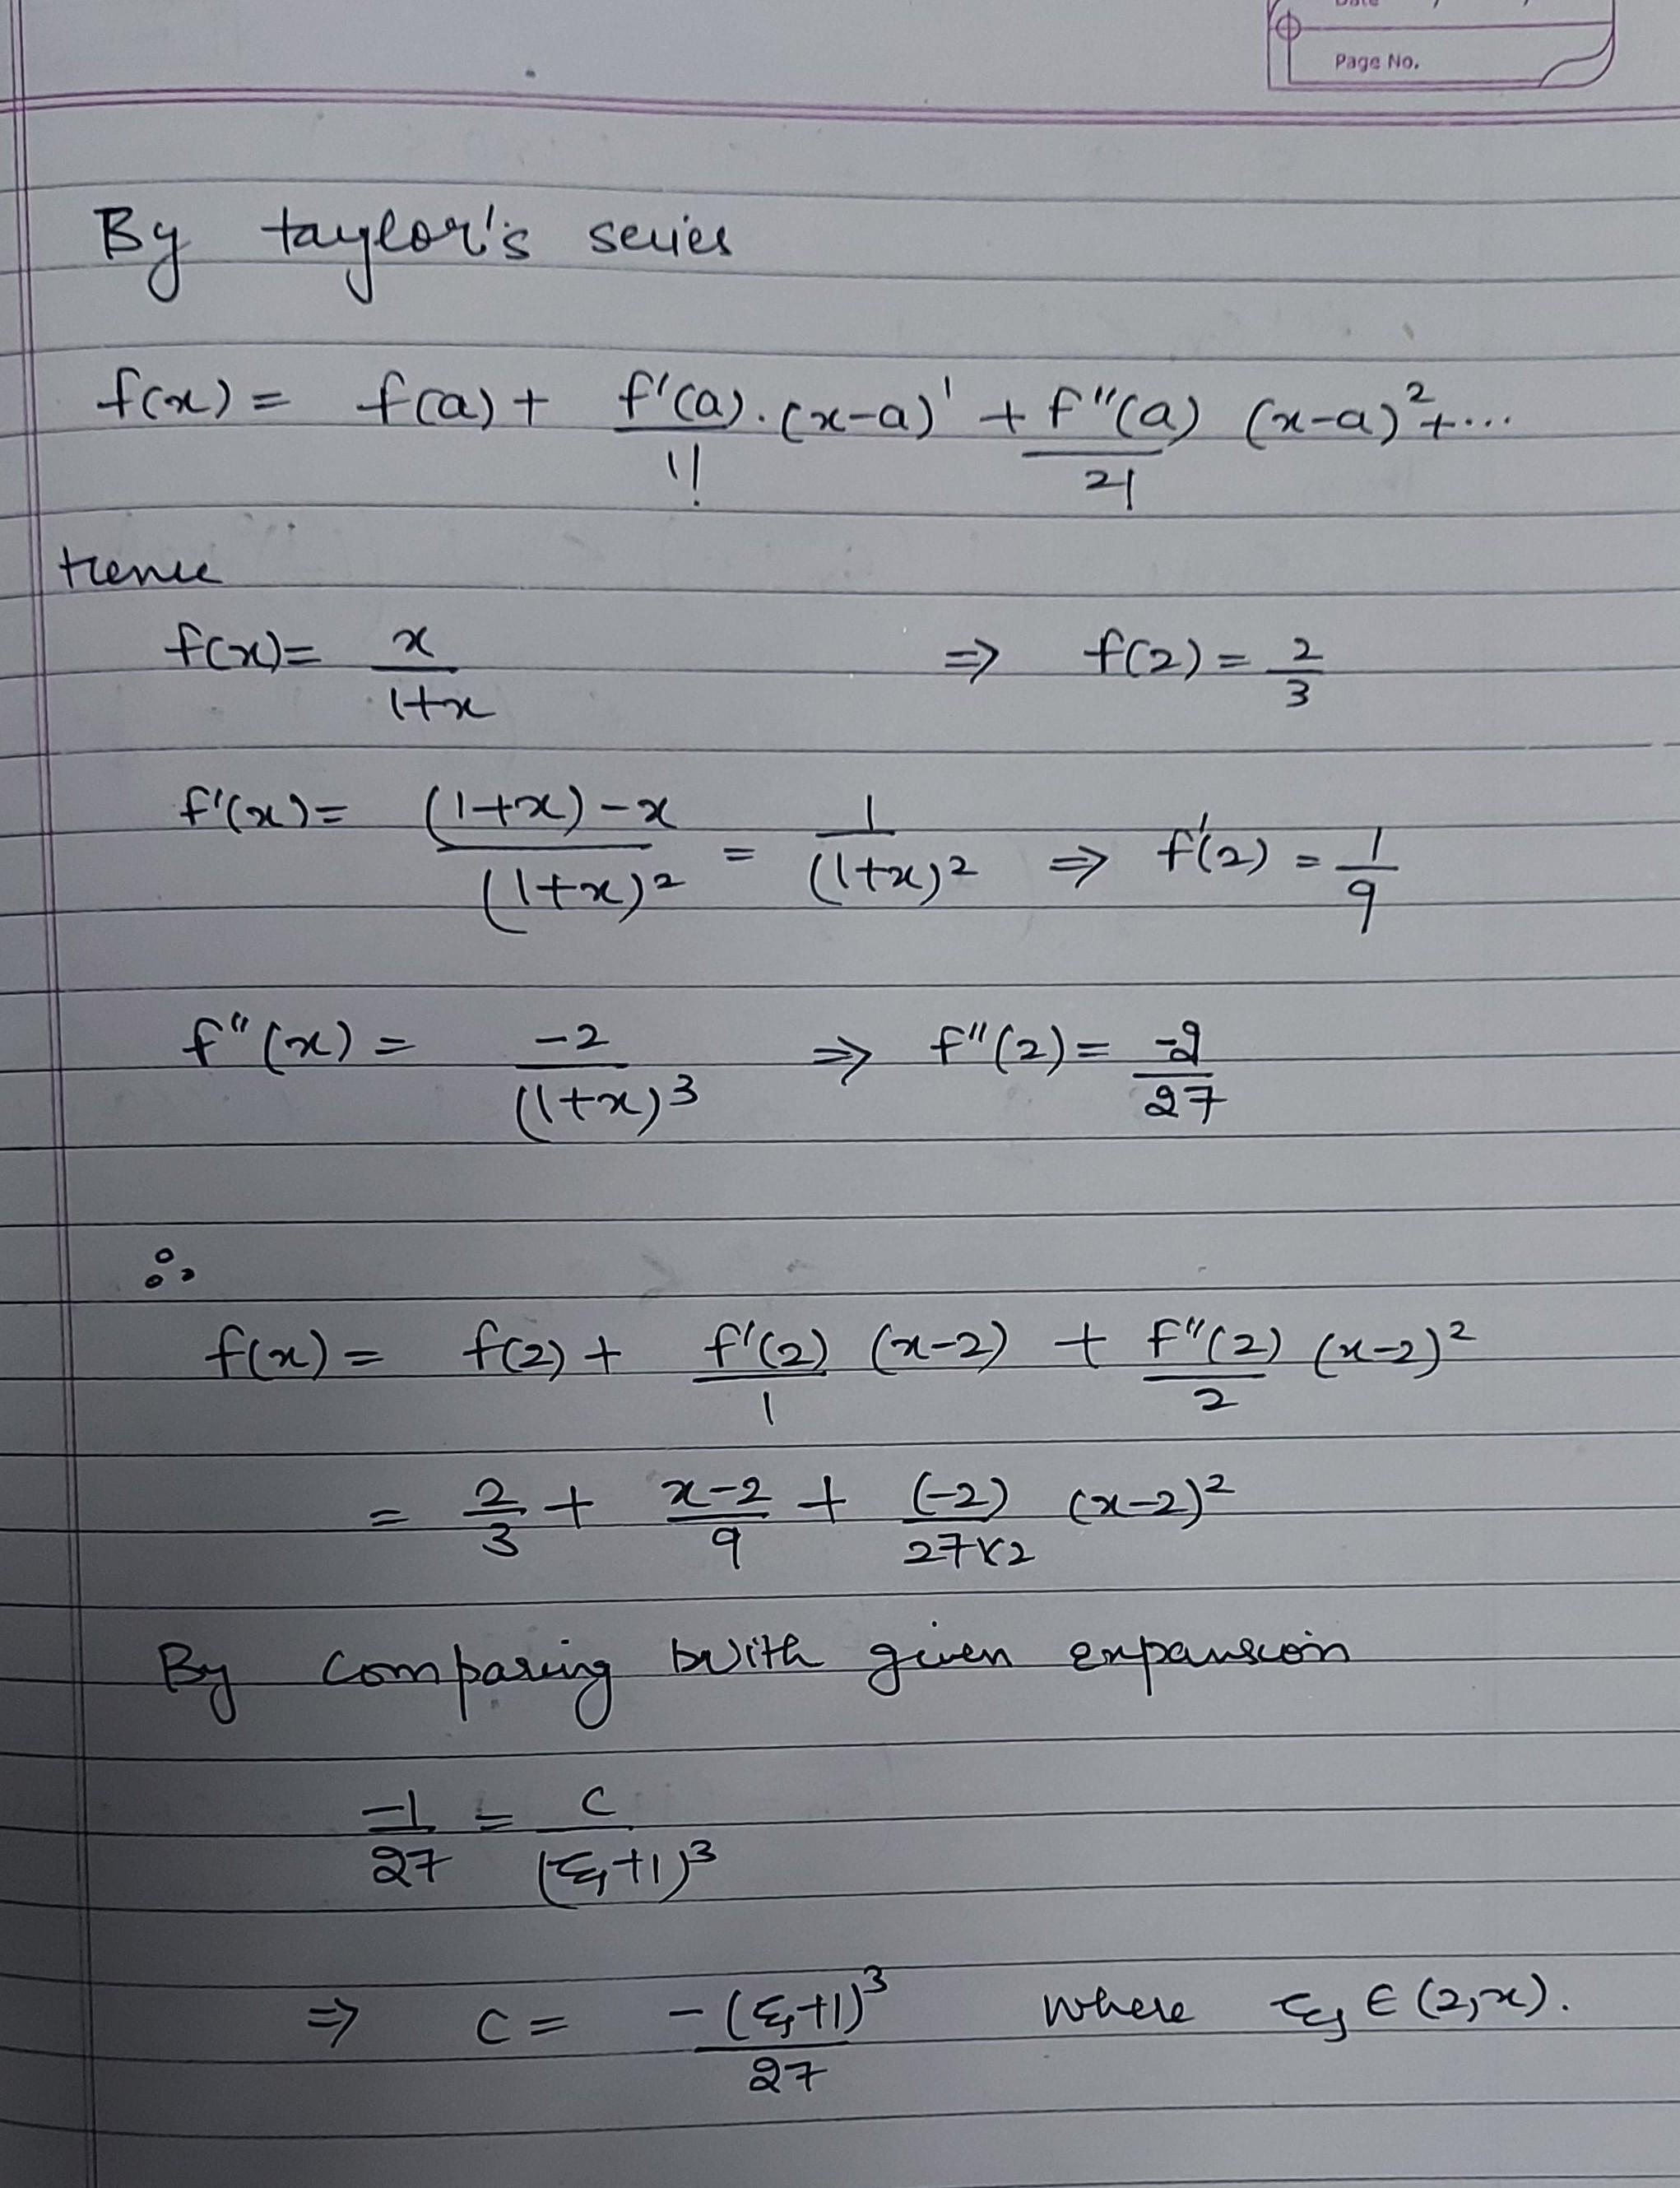 Page No.
By taylor's series
f(x) = f(a) + f'(a)/1! . (x-a)' + f"(a)/2! (x-a)² + ...
Hence
f(x) = x/(1+x) ⇒ f(2) = 2/3
f'(x) = ((1+x) - x)/(1+x)² = 1/(1+x)² ⇒ f'(2) = 1/9
f"(x) = -2/(1+x)³ ⇒ f"(2) = -2/27
∴
f(x) = f(2) + f'(2)/1 (x-2) + f"(2)/2 (x-2)²
= 2/3 + (x-2)/9 + (-2)/(27×2) (x-2)²
By comparing with given expansion
-1/27 = c/(ξ+1)³
⇒ c = -(ξ+1)³/27 where ξ ∈ (2,x).